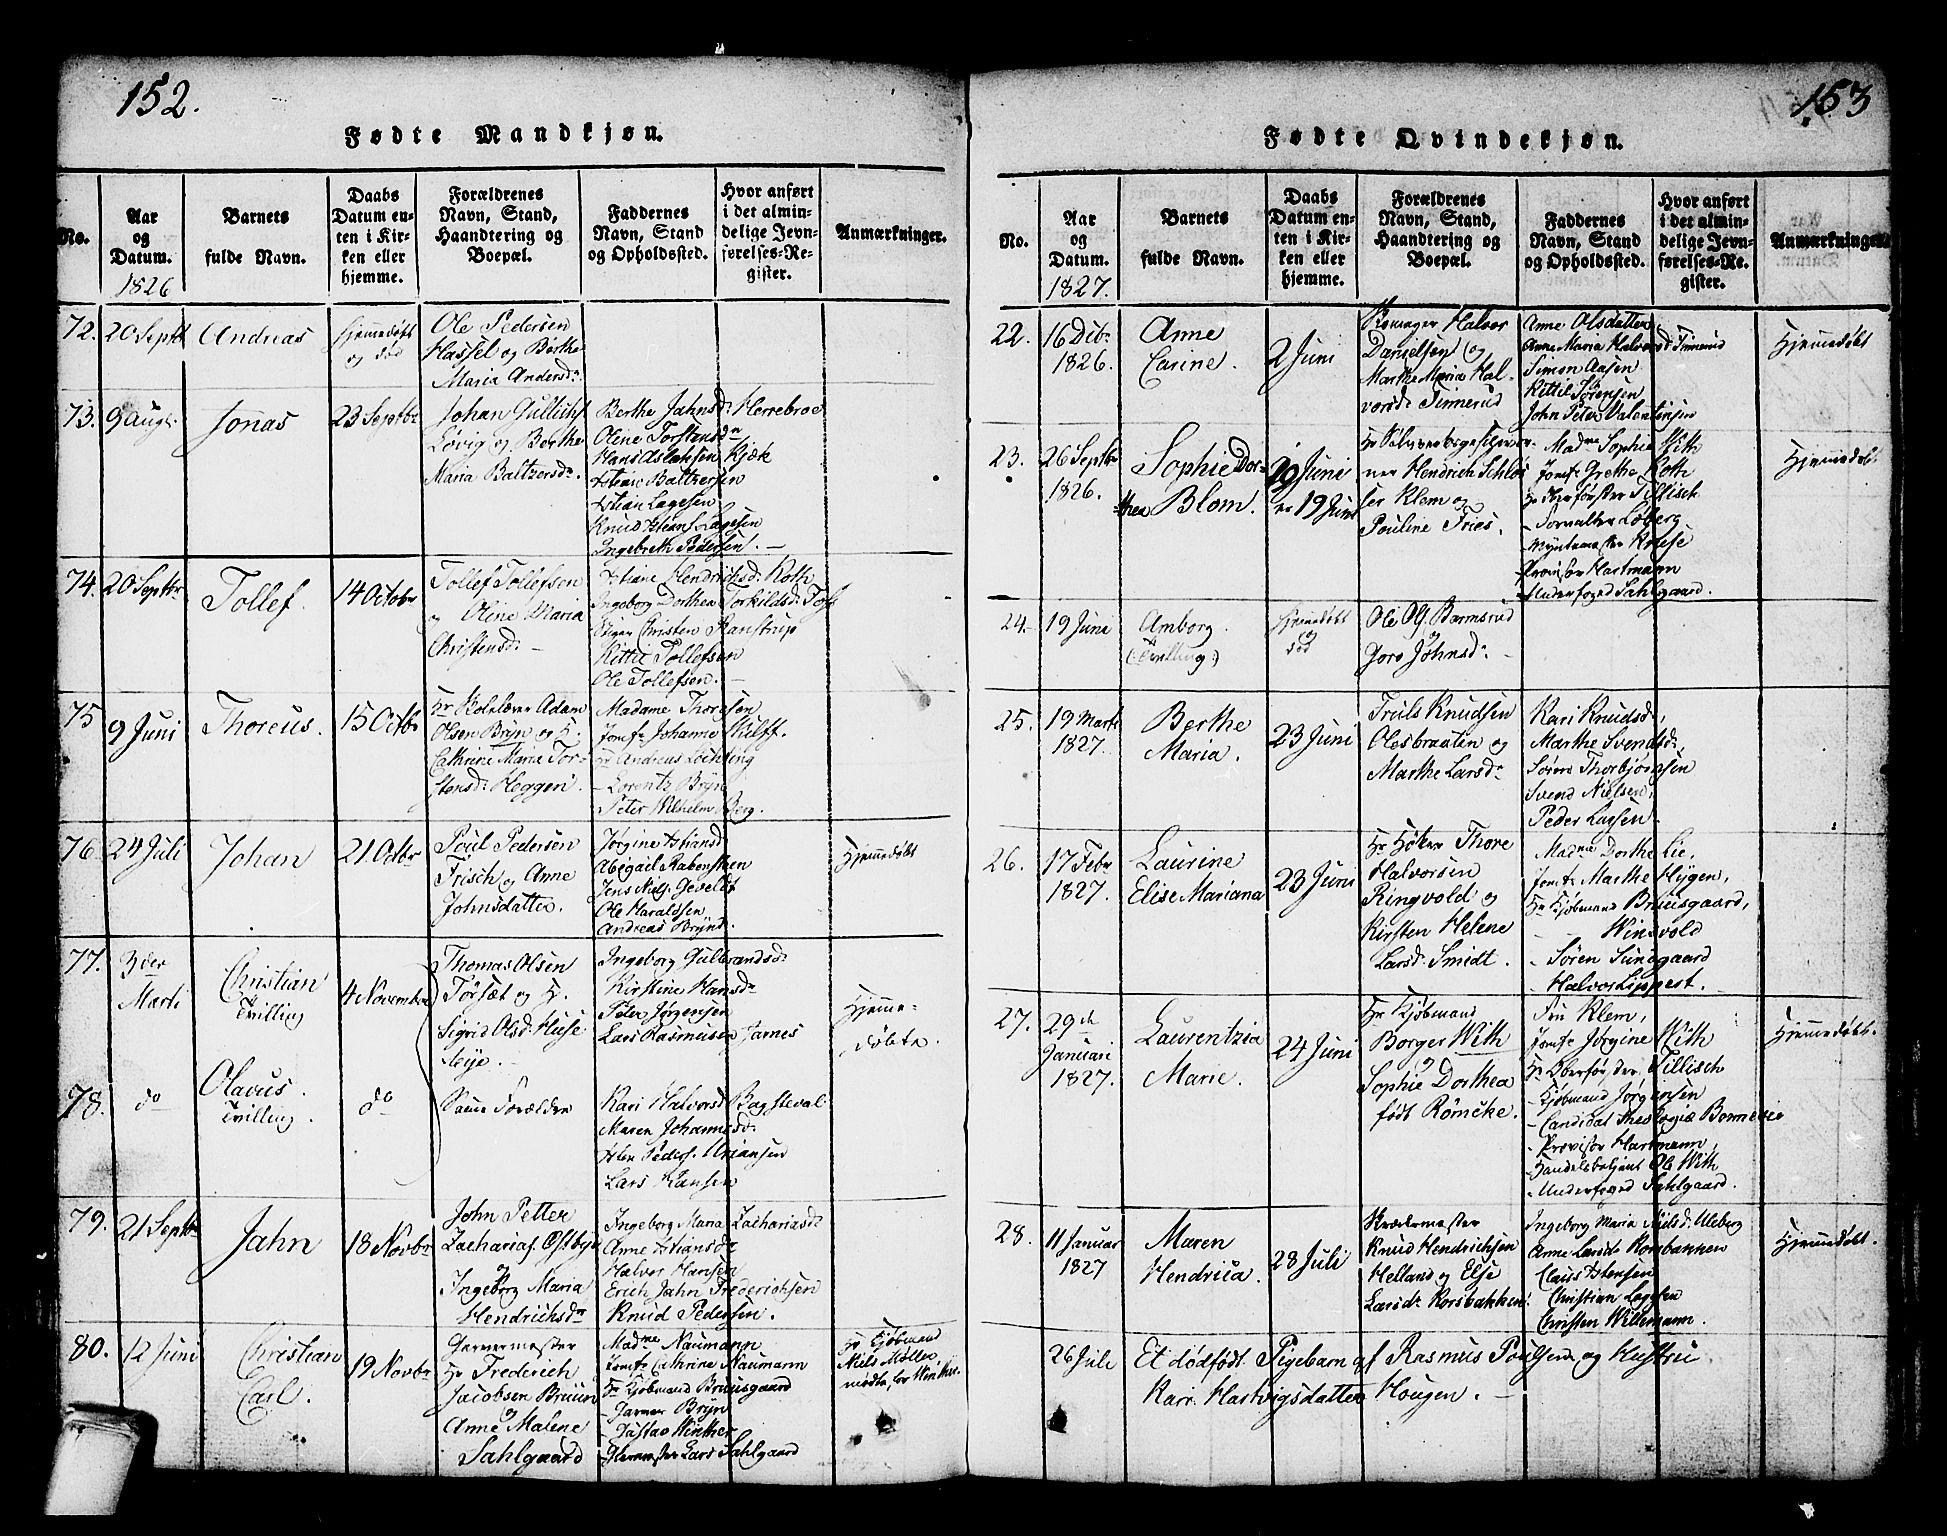 152.
Fødte Mandkjøn.
No.
Aar
og
Datum.
1826
Barnets
fulde Navn.
Daabs
Datum en-
ten i Kir-
ken eller
hjemme.
Forældrenes
Navn, Stand,
Haandtering og
Boepæl.
Faddernes
Navn, Stand
og Opholdssted.
Hvor anført
i det almin-
delige Jevn-
førelses-Re-
gister.
Anmærkninger.
72.
20 Septb
Andreas
Hjemmedøbt
og død
Ole Pedersen
Hassel og Berthe
Maria Andersd.
73.
9 Augt.
Jonas
23 Septbr
Johan Gullichs
Løvig og Berthe
Maria Baltzersd.
Berthe Jahnsd. Herrebroe
Oline Torstensd.
Hans Aslaksen Kjæk
Baltzersen
Lagesen
Knud Lagesen
Ingebreth Pedersen. —
74.
20 Septbr
Tollef.
14 Octobr
Tollef Tollefsen
og Oline Maria
Christensd. —
Hendrichsd. Roth
Ingeborg Dorthea Torkildsd. Foss
Christen Kanstrup
Kittil Tollefsen
Ole Tollefsen. —
75
9 Juni
Thoreus.
15 Octbr
Hr Adam
Olsen Bryn og H.
Cathrine Maria Tor-
stensd. Heggen.
Madame Thoresen
Jomfr Johanne
Hr Andreas
— Lorentz Bryn
Peter Wilhelm Berg.
76.
24 Juli
Johan
21. Octbr
Poul Pedersen
Frisch og Anne
Johnsdatter.
Jørgine
Abigael Rabensteen
Jens Niels. Geveldt
Ole Haraldsen
Andreas Brynd.
Hjemmedøbt
77.
3 der
Marti
Christian
Tvilling
4 November
Thomas Olsen
Torsæt og H.
Sigrid Olsd. Huse-
Ingeborg Gulbrandsd.
Kirstine Hansd.
Peter Jørgensen
Lars Rasmusen Jarnes
Hjemme-
døbte.
78.
do
Olavus.
Tvilling.
do
Samme Forældre
Kari Halvorsd Bagsteval
Maren Johannesd.
Peders.
Lars Hansen
79.
21 Septbr
Jahn
18 Novbr
John Petter
Zacharias Østbye
og
Ingeborg Maria
Hendrichsd.
Ingeborg Maria Zachariasd.
Anne
Halvor Hansen
Erich Jahn Frederichsen
Knud Pedersen.
80.
12 Juni
Christian
Carl.
19 Novbr
Garvermester
Hr Frederich
Jacobsen Bruun
og
Anne Malene
Sahlgaard
Madme Naumann.
Jomfr Cathrine Naumann
Hr Kjøbmand Bruusgaard
— Garver Bryn
— Gustav Winther
— Lars Sahlgaard
Hr Kjøbmand
Niels Møller
mødte for
153
Fødte Qvindekjøn.
No.
Aar
og
Datum.
1827.
Barnets
fulde Navn.
Daabs
Datum en-
ten i Kir-
ken eller
hjemme.
Forældrenes
Navn, Stand,
Haandtering og
Boepæl.
Faddernes
Navn, Stand
og Opholdssted.
Hvor anført
i det almin-
delige Jevn-
førelses-Re-
gister.
Anmærkninger
22.
16 Dcb.
1826.
Anne
Carine.
2 Juni
Halvor
Danielsen og
Marthe Maria Hal-
vorsd. Tinnerud
Anne Olsdatter
Anne Maria Halvorsd. Tinnerud
Simon Aasen
Kittil Sørensen
John Peter Valentinsen
Hjemmedøbt
23.
26 Septbr
1826.
Sophie Dor-
thea Blom.
19 Juni
19 Juni
Hr
Hendrich Schlös-
ser Klem og
Pauline Fries.
Madme Sophie With
Jomfr Grethe Roth
Hr Tillisch
— Forvalter Løberg
— Myntmester Kruse
— Provisor Hartmann
— Underfoged Sahlgaard.
Hjemmedøbt
24.
19 Juni
Amborg.
(: Tvilling :)
Hjemmedøbt
og
død
Ole Ol. Barmsrud
og
Goro Johnsd. —
25.
19 Marts
1827.
Berthe
Maria.
23 Juni
Truls Knudsen
Olesbraaten og
Marthe Larsd.
Kari Knudsd.,
Marthe Svendsd.,
Søren Thorbjørnsen
Svend Nielsen,
Peder Larsen.
26.
17 Febr
1827.
Laurine
Elise Mariana
23 Juni
Hr Høker Thore
Halvorsen
Ringvold og
Kirsten Helene
Larsd. Smidt.
Madme Dorthe Lie,
Jomfr Marthe Hygen,
Hr Kjøbmand Bruusgaard,
— — Winsvold
— Søren Sunagaard
— Halvor Lippest.
27.
29 d.
Januari
1827.
Laurentzia
Marie.
24 Juni
Hr Kjøbmand
Borger With
og
Sophie Dorthea
født Römcke.
Klem,
Jomfr Jørgine With
Hr Oberførster Tillisch
— Kjøbmand Jørgensen
— Candidat theologiæ Bonnevie
— Provisor Hartmann,
— Handelsbetjent Ole With
— Underfoged Sahlgaard.
Hjemmedøbt.
28.
11 Januar
1827
Maren
Hendrica.
28 Juli
Skrædermester
Knud Hendrichsen
Helland og Else
Larsd. Korsbakken.
Ingeborg Maria Nielsd. Uleberg
Anne Larsd. Korsbakken
Claus
Christian Lagesen
Christen Willemann.
Hjemmedøbt.
26 Juli
Et dødfødt Pigebarn af Rasmus Poulsen og Hustru
Kari Hartvigsdatter Hougen. —